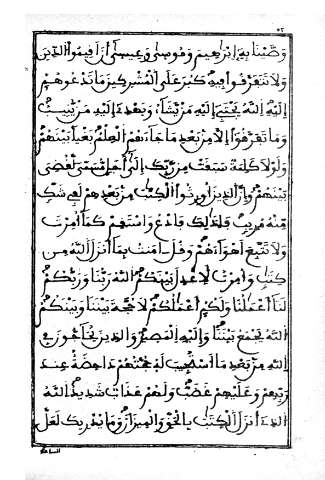 وَصَّيْنَا بِهِ إِبْرَٰهِيمَ وَمُوسَىٰ وَعِيسَىٰ أَنْ أَقِيمُوا الدِّينَ
وَلَا تَتَفَرَّقُوا فِيهِ كَبُرَ عَلَى الْمُشْرِكِينَ مَا تَدْعُوهُمْ
إِلَيْهِ اللَّهُ يَجْتَبِي إِلَيْهِ مَنْ يَشَاءُ وَيَهْدِي إِلَيْهِ مَنْ يُنِيبُ
وَمَا تَفَرَّقُوا إِلَّا مِنْ بَعْدِ مَا جَاءَهُمُ الْعِلْمُ بَغْيًا بَيْنَهُمْ
وَلَوْلَا كَلِمَةٌ سَبَقَتْ مِنْ رَبِّكَ إِلَىٰ أَجَلٍ مُسَمًّى لَقُضِيَ
بَيْنَهُمْ وَإِنَّ الَّذِينَ أُورِثُوا الْكِتَٰبَ مِنْ بَعْدِهِمْ لَفِي شَكٍّ
مِنْهُ مُرِيبٍ فَلِذَٰلِكَ فَادْعُ وَاسْتَقِمْ كَمَا أُمِرْتَ
وَلَا تَتَّبِعْ أَهْوَاءَهُمْ وَقُلْ ءَامَنْتُ بِمَا أَنْزَلَ اللَّهُ مِنْ
كِتَٰبٍ وَأُمِرْتُ لِأَعْدِلَ بَيْنَكُمُ اللَّهُ رَبُّنَا وَرَبُّكُمْ
لَنَا أَعْمَٰلُنَا وَلَكُمْ أَعْمَٰلُكُمْ لَا حُجَّةَ بَيْنَنَا وَبَيْنَكُمُ
اللَّهُ يَجْمَعُ بَيْنَنَا وَإِلَيْهِ الْمَصِيرُ وَالَّذِينَ يُحَاجُّونَ فِي
اللَّهِ مِنْ بَعْدِ مَا اسْتُجِيبَ لَهُ حُجَّتُهُمْ دَاحِضَةٌ عِنْدَ
رَبِّهِمْ وَعَلَيْهِمْ غَضَبٌ وَلَهُمْ عَذَابٌ شَدِيدٌ اللَّهُ
الَّذِي أَنْزَلَ الْكِتَٰبَ بِالْحَقِّ وَالْمِيزَانَ وَمَا يُدْرِيكَ لَعَلَّ
الساعة